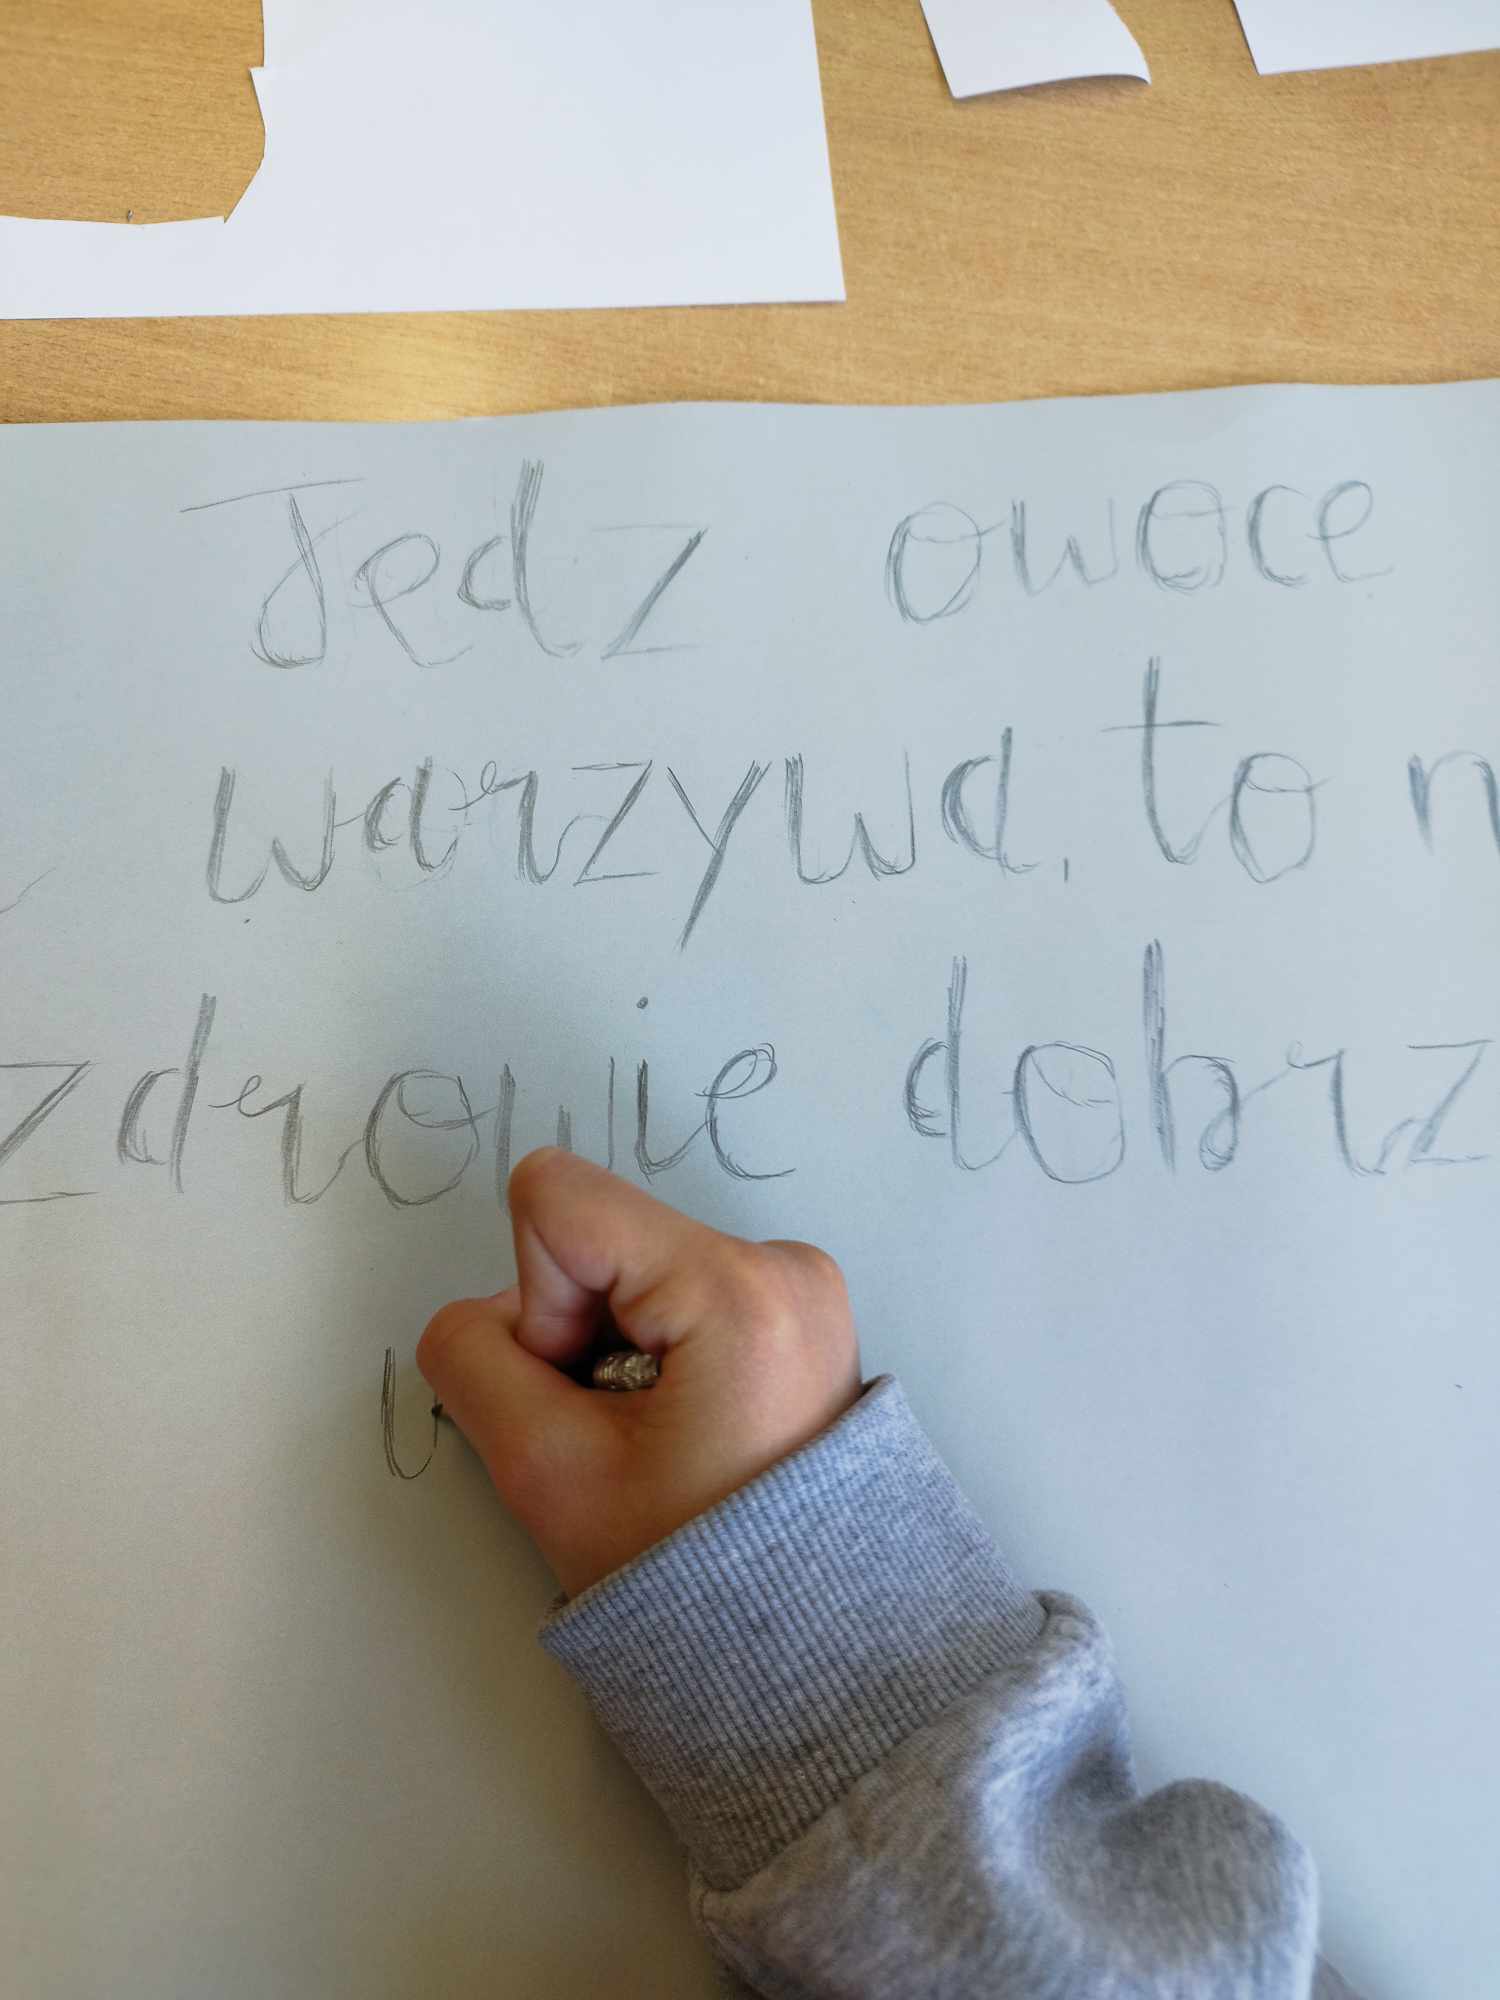 Jedz owoce
warzywa, to n
zdrowie dobrz
w